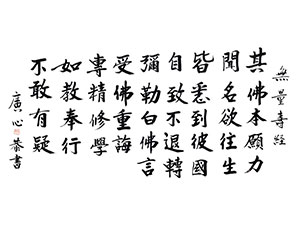 無量壽經
其佛本願力
聞名欲往生
皆悉到彼國
自致不退轉
彌勒白佛言
受佛重誨
專精修學
如教奉行
不敢有疑
廣心恭書